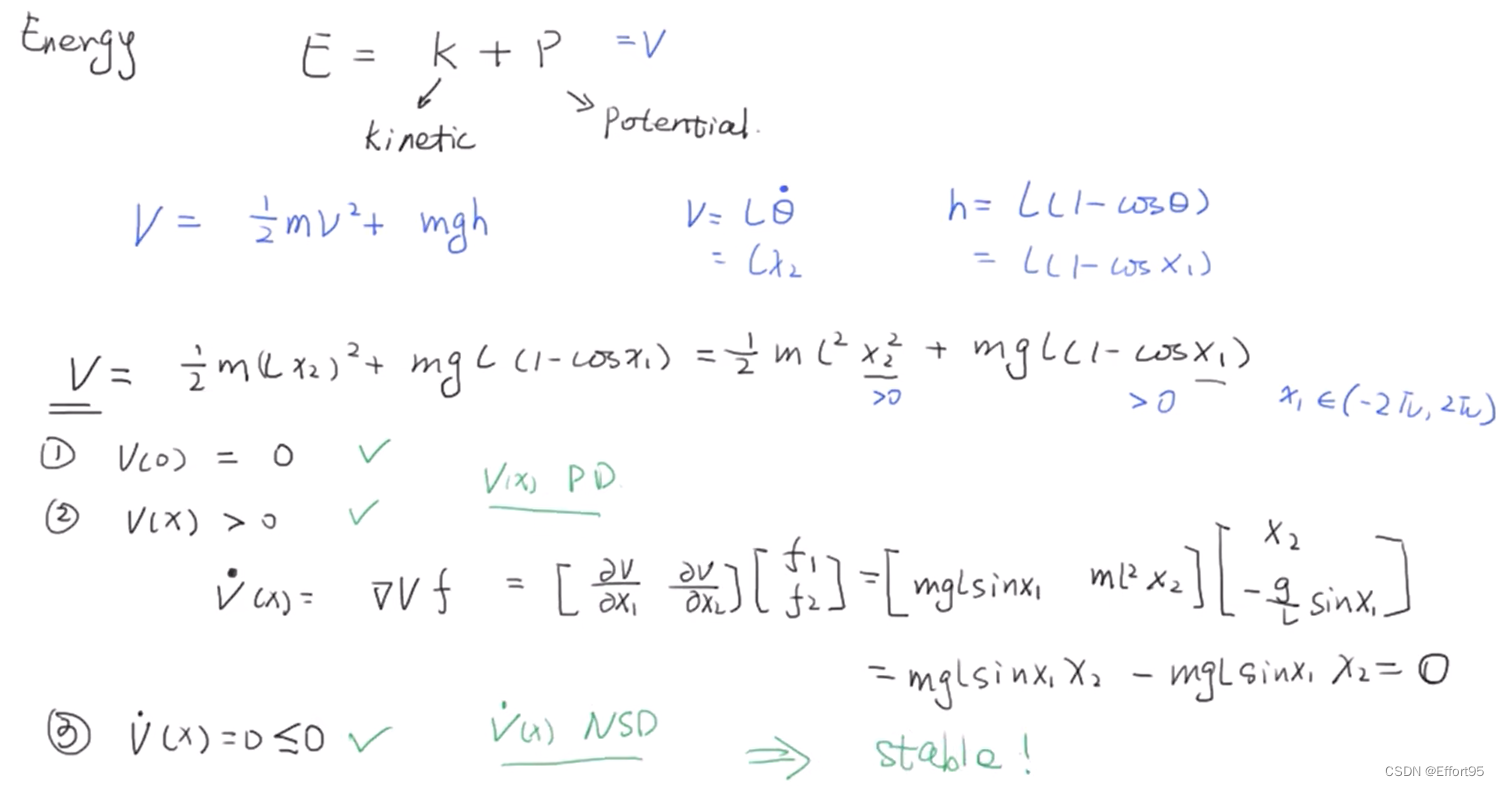 Energy E = k + P = V
kinetic potential.
V = ½mv² + mgh v = Lθ̇ h = L(1-cosθ)
= Lx₂ = L(1-cosx₁)
V = ½m(Lx₂)² + mgL(1-cosx₁) = ½mL²x₂² + mgL(1-cosx₁)
>0 >0 x₁ ∈ (-2π, 2π)
① V(0) = 0 ✓
V(x) PD
② V(x) > 0 ✓
V̇(x) = ∇V f = [∂V/∂x₁ ∂V/∂x₂][f₁ f₂] = [mgLsinx₁ mL²x₂][x₂ -g/L sinx₁]
= mgLsinx₁x₂ - mgLsinx₁x₂ = 0
③ V̇(x) = 0 ≤ 0 ✓ V̇(x) NSD ⇒ stable!
CSDN @Effort95